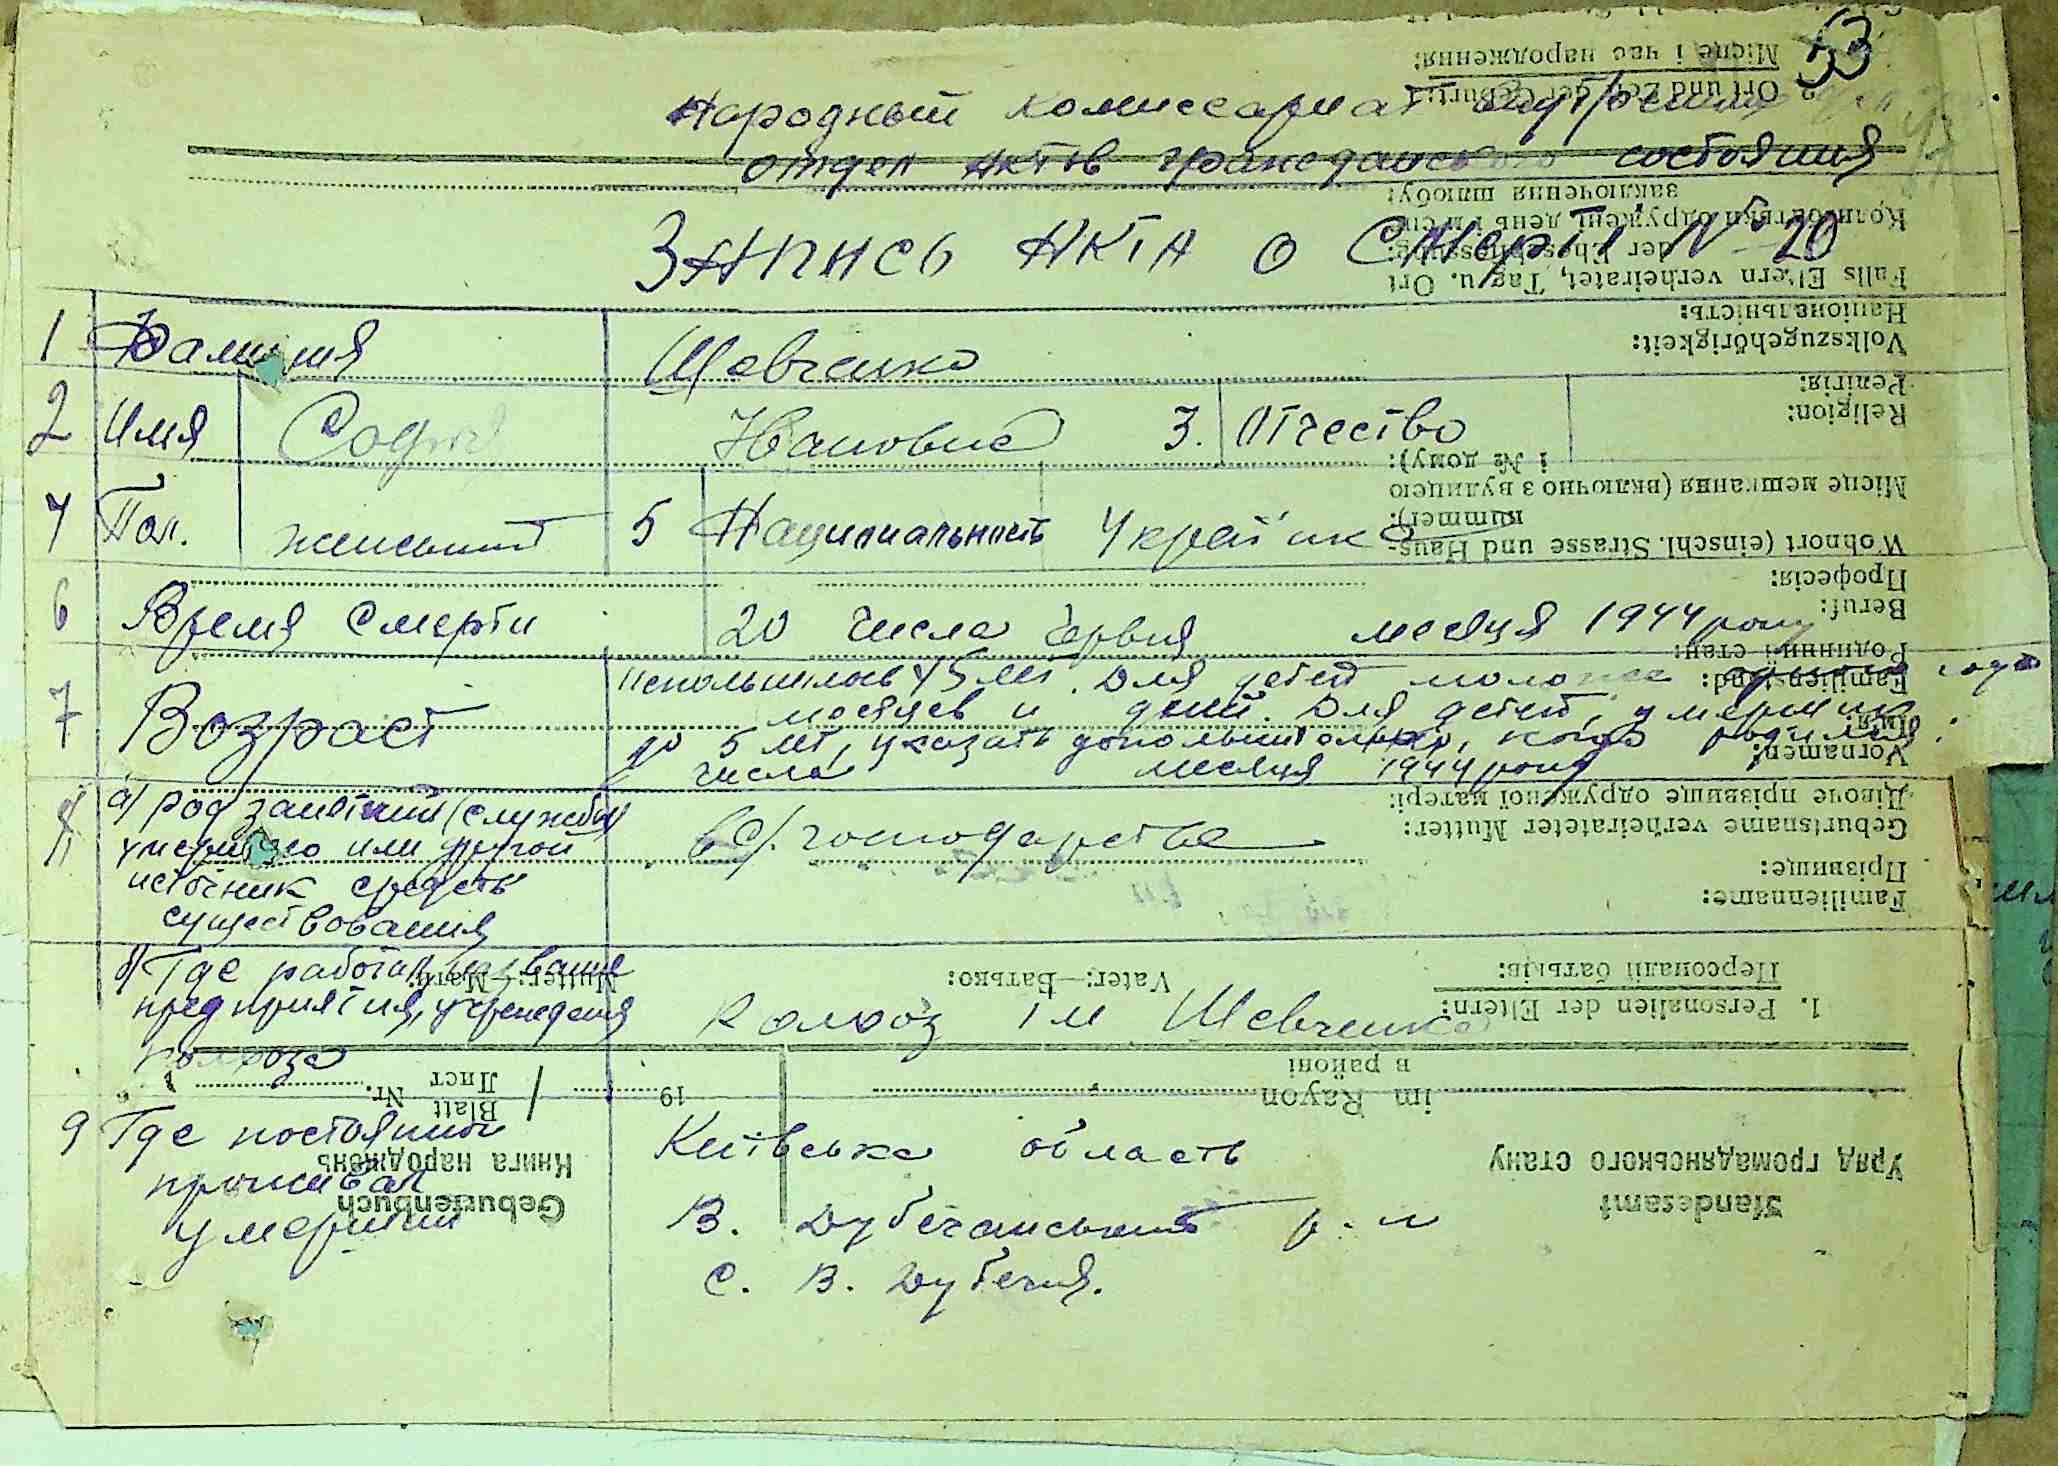 53
Народный комиссариат внутренних
отдел актов гражданского состояния
Запись акта о смерти № 20
1 Фамилия Шевченко
2 Имя Софія Ивановна 3. Отчество
4 Пол. женский 5 Национальность Українка
6 Время смерти 20 числа Червня месяца 1944 року
7 Возраст исполнилось 45 лет. Для детей моложе одного года
месяцев и дней. Для детей, умерших
до 5 лет, указать дополнительно, когда родился:
числа месяца 1944 року
8 а) род занятий (службы) в с/. господарстве
умершего или другой
источник средств
существования
б) Где работал, название
предприятия, учреждения Колхоз ім Шевченка
колхоза
9 Где постоянно Київська область
проживал В. Дубечанський р-н
умерший с. В. Дубечня.
Standesamt
Уряд громадянського стану
Geburtenbuch
Книга народжень
im Rayon
в районі
19
Blatt Nr.
Лист
1. Personalien der Eltern:
Персоналії батьків:
Vater:—Батько:
Mutter:—Мати:
Familienname:
Прізвище:
Geburtsname verheirateter Mutter:
Дівоче прізвище одруженої матері:
Vornamen:
Ім'я:
Familienstand:
Родинний стан:
Beruf:
Професія:
Wohnort (einschl. Strasse und Haus-
nummer):
Місце мешкання (включно з вулицею
і № дому):
Religion:
Релігія:
Volkszugehörigkeit:
Національність:
Falls Eltern verheiratet, Tag u. Ort
der Eheschliessung:
Коли батьки одружені, день і місце
заключення шлюбу:
2. Ort und Zeit der Geburt:
Місце і час народження: